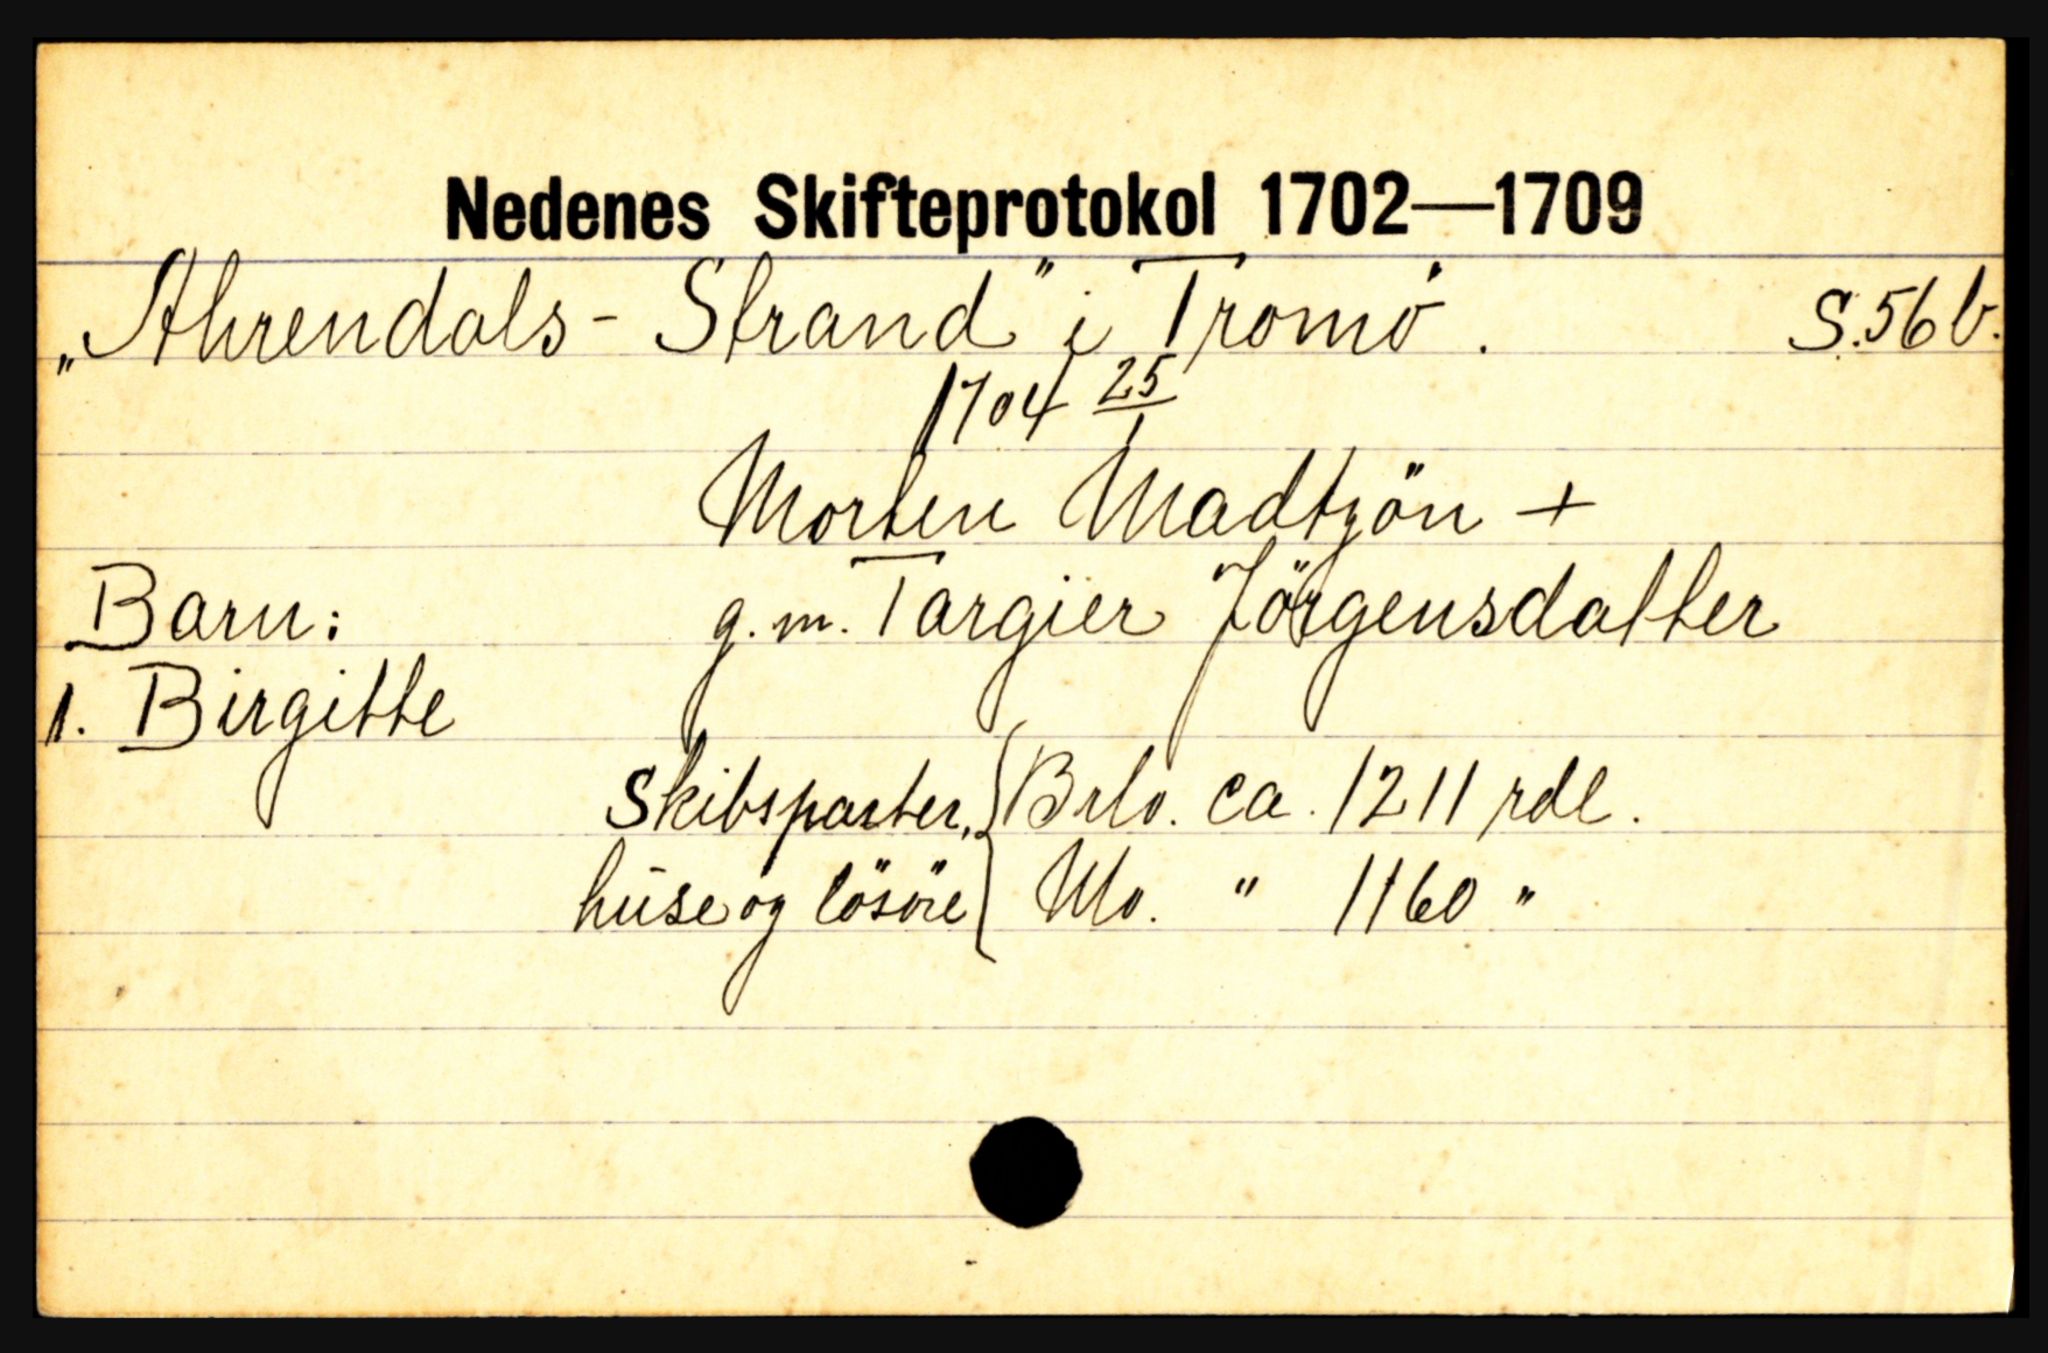 Nedenes Skifteprotokol 1702—1709
„Ahrendals - Strand" i Tromö. S. 56 b.
1704 25/1
Morten Madtzön +
Barn: g. m. Targier Jörgensdatter
1. Birgitte
Skibsparter, { Brlo. ca. 1211 rdl.
huse og lösöre { Mo. " 1160 "